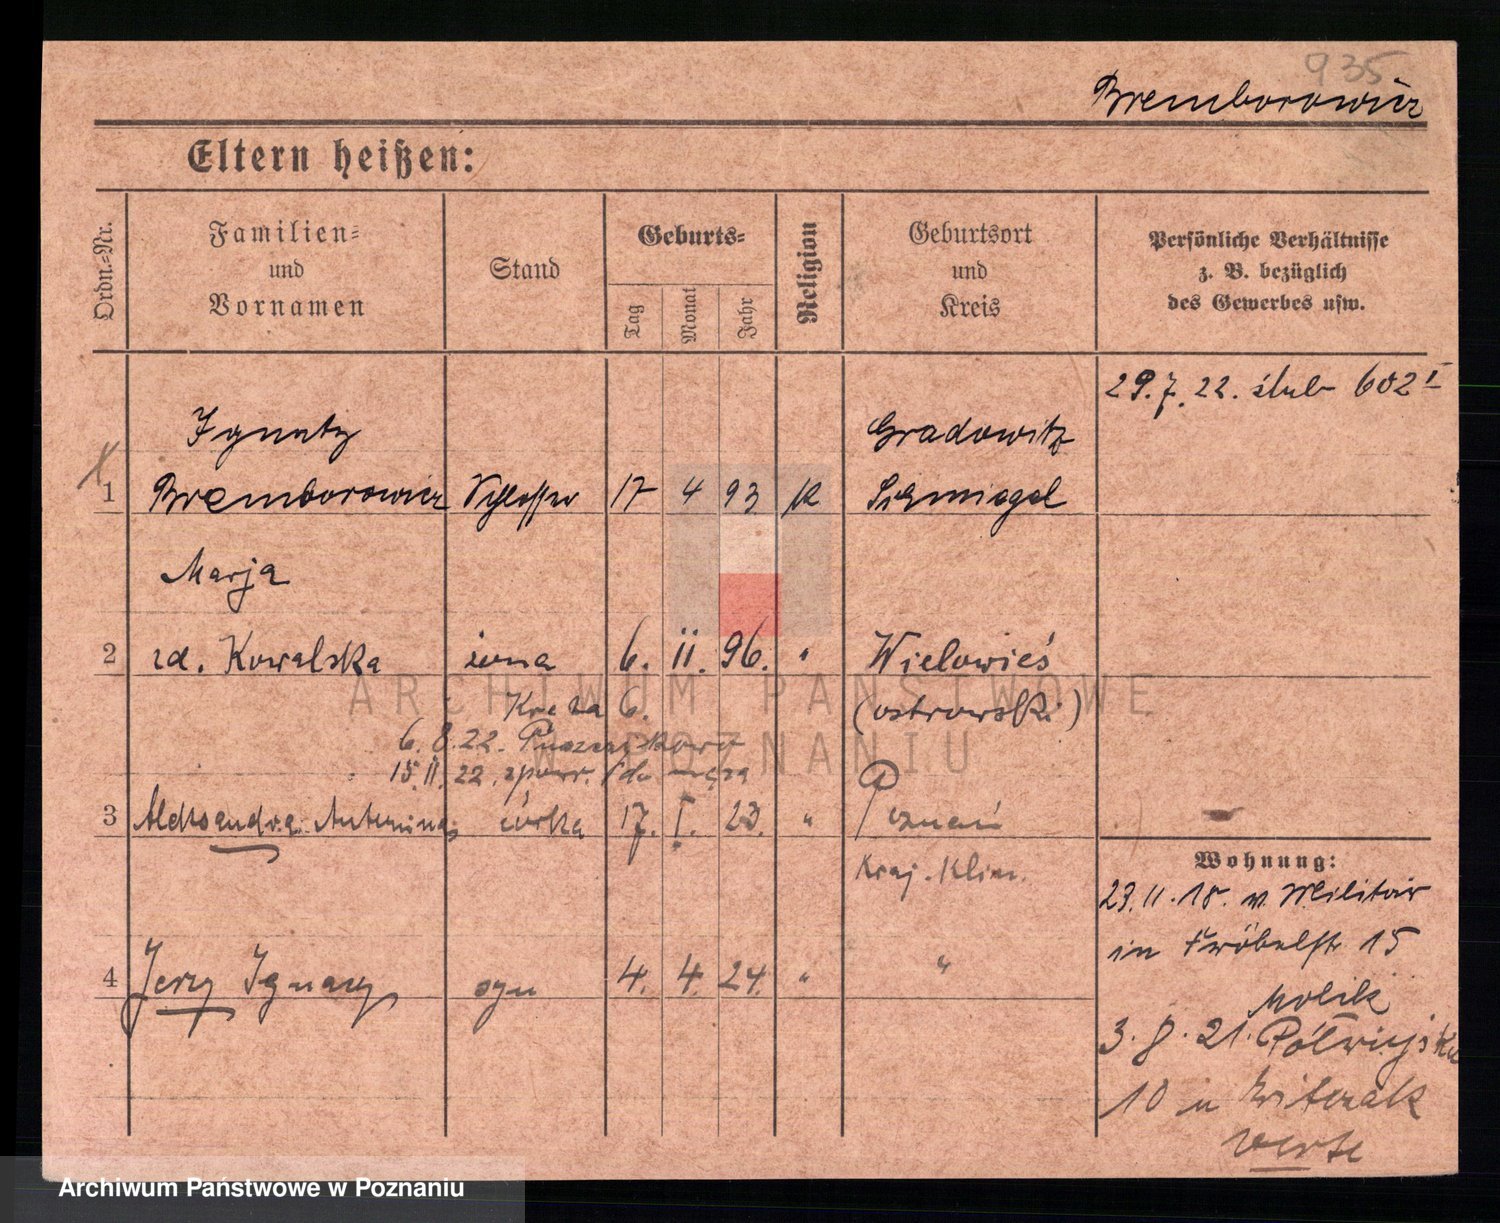 935
Bremborowicz
Eltern heißen:
Ordn.-Nr.
Familien-
und
Vornamen
Stand
Geburts-
Tag
Monat
Jahr
Religion
Geburtsort
und
Kreis
Persönliche Verhältnisse
z. B. bezüglich
des Gewerbes usw.
29.7.22. ślub 602 I
Ignatz Gradowitz
1 Bremborowicz Schlosser 17 4 93 K Schmiegel
Marja
2 zd. Kowalska żona 6. II. 96. " Wielowieś
Kreta 6. (ostrowski)
6.8.22. Puszczykowo
15.II.22. zpow. do męża
3 Aleksandra Antonina córka 17. I. 23. " Poznań
Wohnung:
Kraj.
23.11.18. v. Militär
in Fröbelstr. 15
4 Jerzy Ignacy syn 4. 4. 24. " "
3.8.21. Półwiejska
10 u
verte
ARCHIWUM PAŃSTWOWE
W POZNANIU
Archiwum Państwowe w Poznaniu